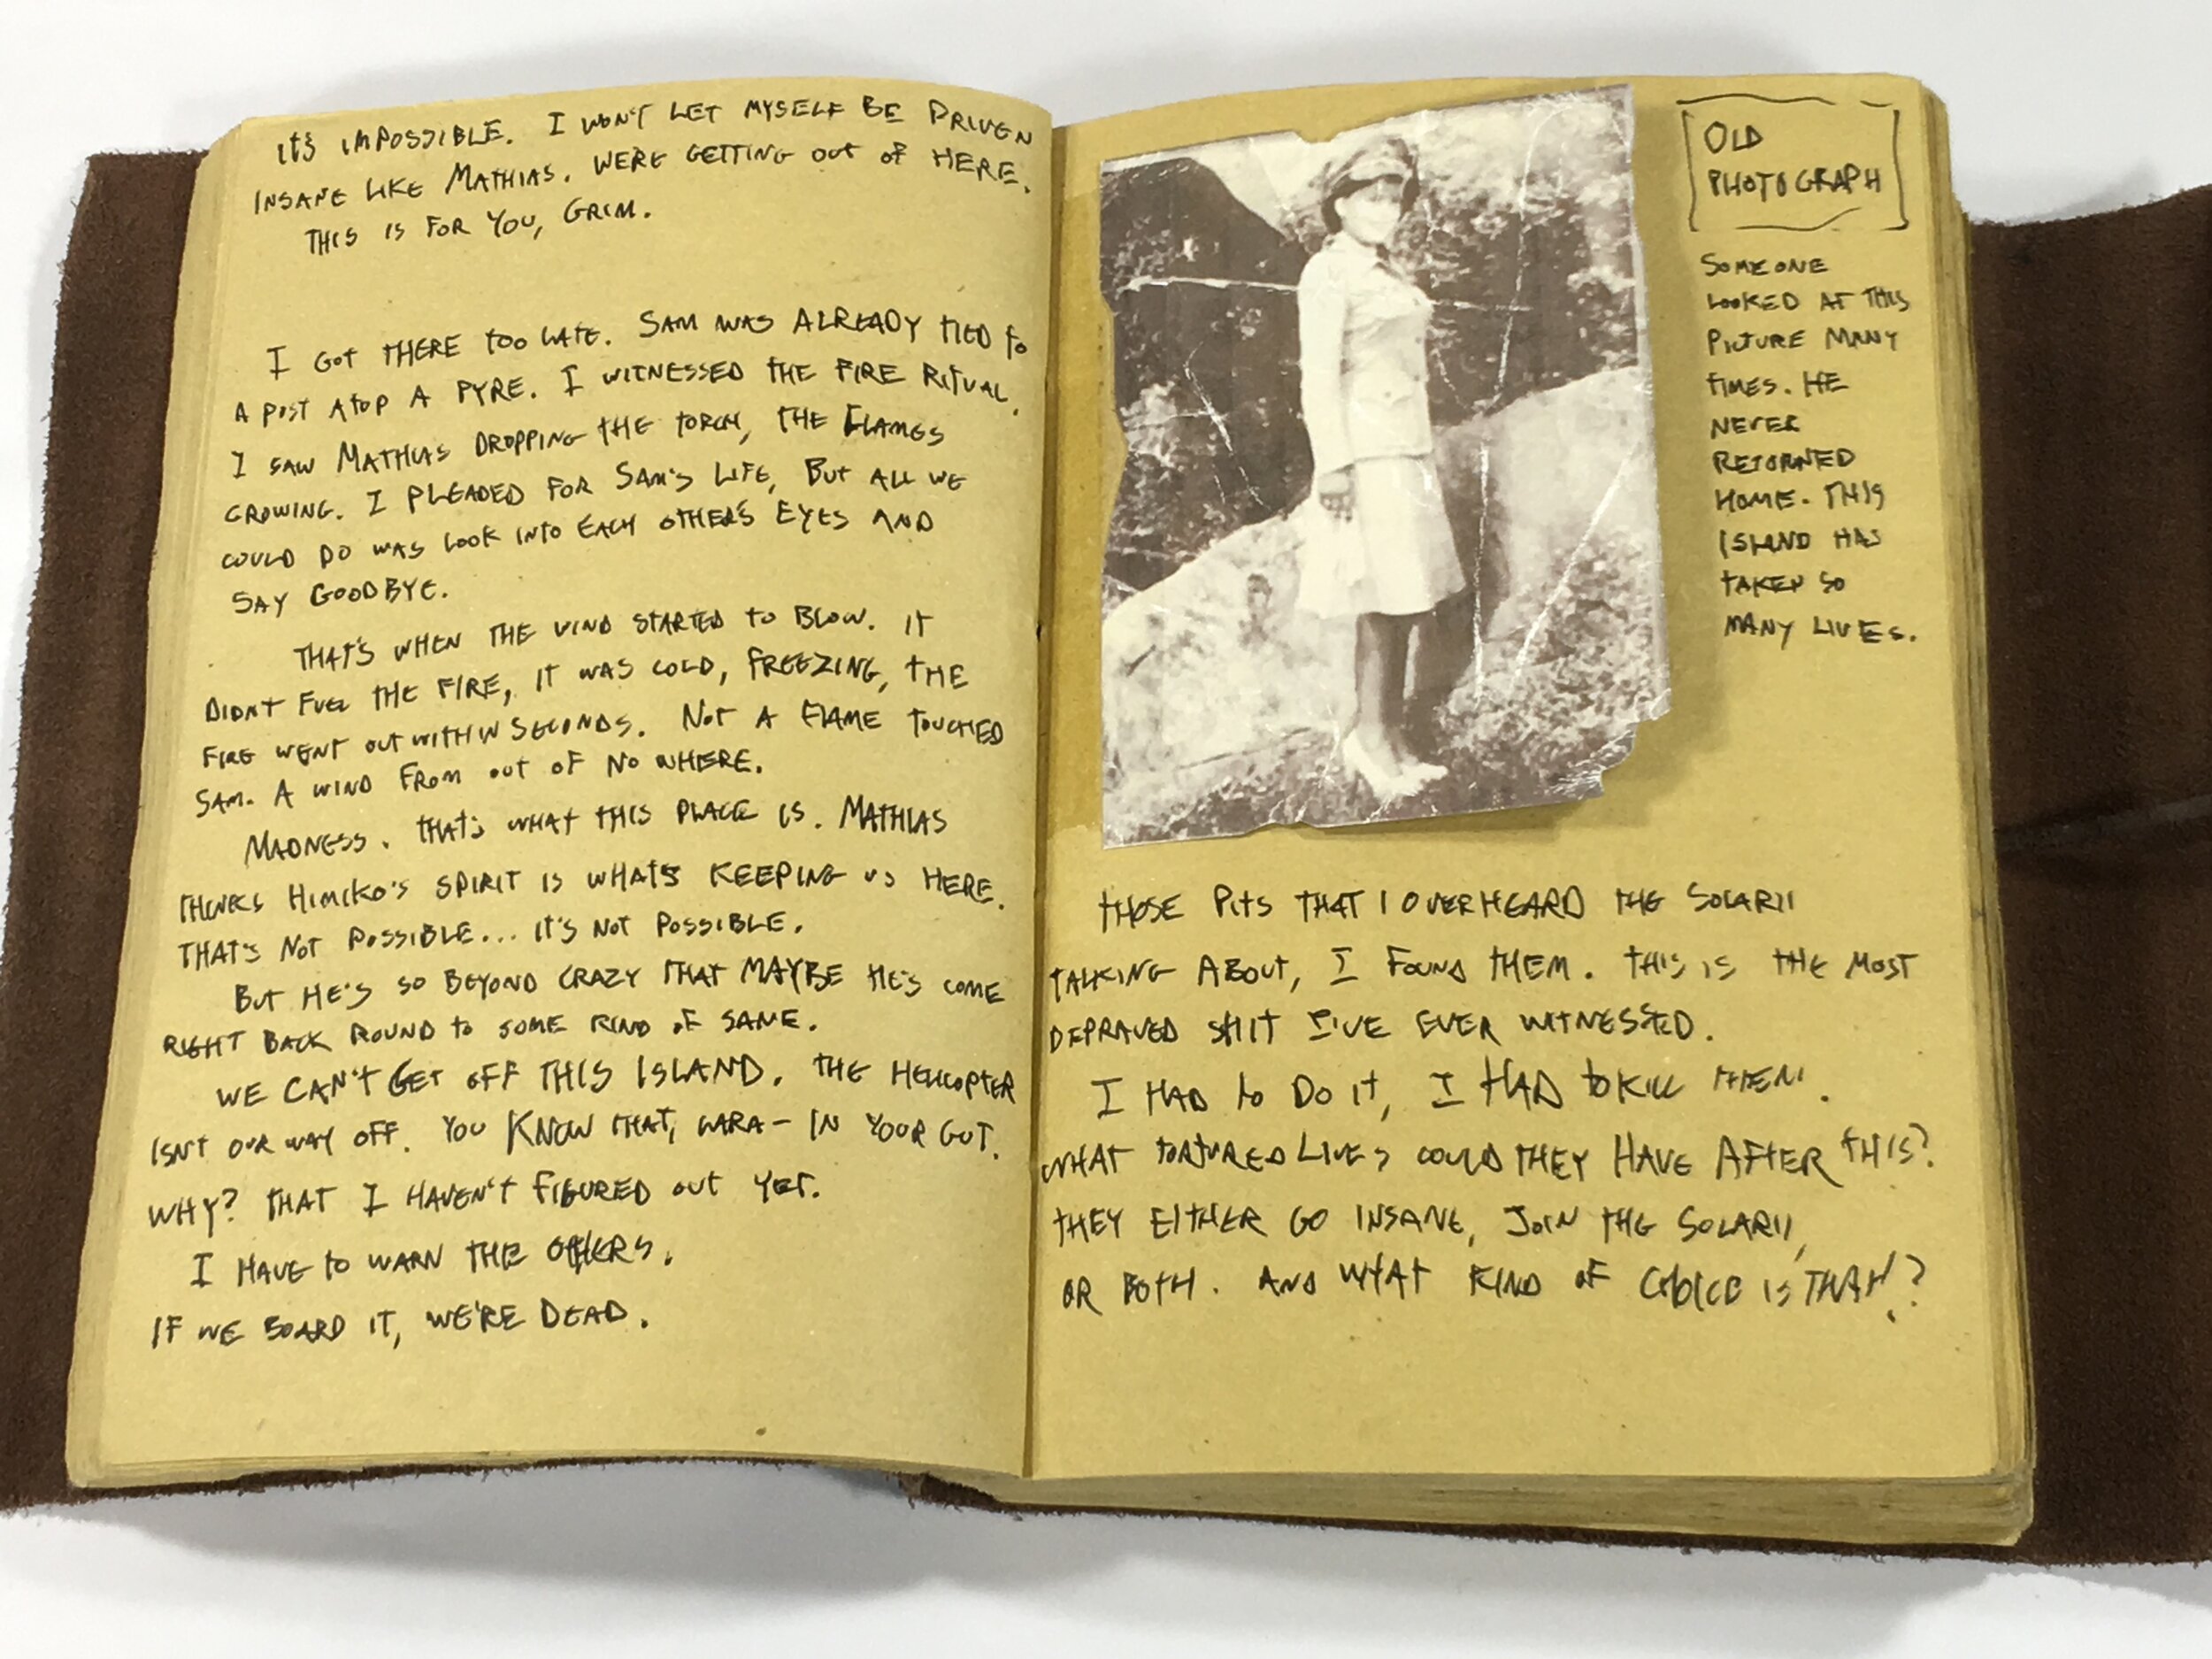 It's impossible. I won't let myself be driven
insane like Mathias. We're getting out of here.
This is for you, Grim.
I got there too late. Sam was already tied to
a post atop a pyre. I witnessed the fire ritual.
I saw Mathias dropping the torch, the flames
growing. I pleaded for Sam's life, but all we
could do was look into each other's eyes and
say goodbye.
That's when the wind started to blow. It
didn't fuel the fire, it was cold, freezing, the
fire went out within seconds. Not a flame touched
Sam. A wind from out of no where.
Madness. That's what this place is. Mathias
thinks Himiko's spirit is what's keeping us here.
That's not possible... it's not possible.
But he's so beyond crazy that maybe he's come
right back round to some kind of sane.
We can't get off this island. The helicopter
isn't our way off. You know that, Lara – in your gut.
Why? That I haven't figured out yet.
I have to warn the others.
If we board it, we're dead.
Old
Photograph
Someone
looked at this
picture many
times. He
never
returned
home. This
island has
taken so
many lives.
Those pits that I overheard the Solarii
talking about, I found them. This is the most
depraved shit I've ever witnessed.
I had to do it, I had to kill them.
What tortured lives could they have after this?
They either go insane, join the Solarii,
or both. And what kind of choice is that?